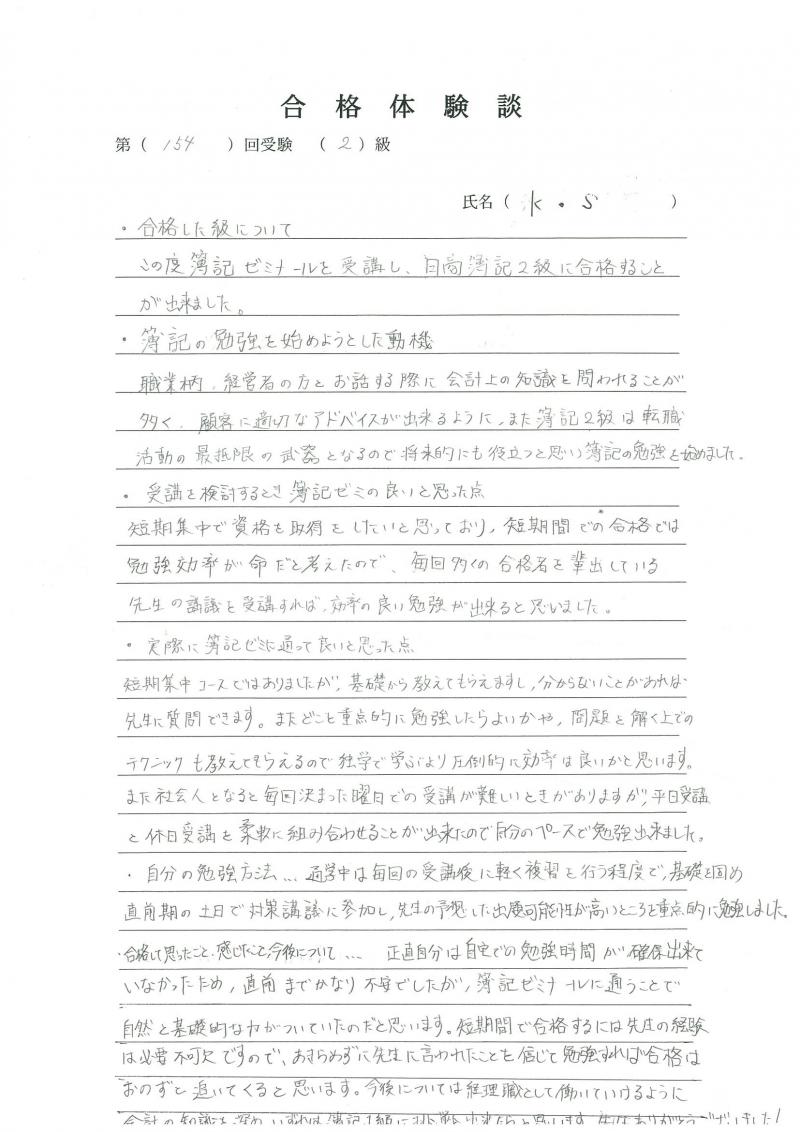 合格体験談
第（ 154 ）回受験 （ 2 ）級
氏名（ K . S ）
・合格した級について
この度簿記ゼミナールを受講し、日商簿記2級に合格すること
が出来ました。
・簿記の勉強を始めようとした動機
職業柄、経営者の方とお話する際に会計上の知識を問われることが
多く、顧客に適切なアドバイスが出来るように、また簿記2級は転職
活動の最抵限の武器となるので将来的にも役立つと思い簿記の勉強を始めました。
・受講を検討するとき簿記ゼミの良いと思った点
短期集中で資格を取得をしたいと思っており、短期間での合格では
勉強効率が命だと考えたので、毎回多くの合格者を輩出している
先生の講議を受講すれば、効率の良い勉強が出来ると思いました。
・実際に簿記ゼミに通って良いと思った点
短期集中コースではありましたが、基礎から教えてもらえますし、分からないことがあれば
先生に質問できます。またどこを重点的に勉強したらよいかや、問題を解く上での
テクニックも教えてもらえるので独学で学ぶより圧倒的に効率は良いかと思います。
また社会人となると毎回決まった曜日での受講が難しいときがありますが、平日受講
と休日受講を柔軟に組み合わせることが出来たので自分のペースで勉強出来ました。
・自分の勉強方法… 通学中は毎回の受講後に軽く複習を行う程度で、基礎を固め
直前期の土日で対策講議に参加し、先生の予想した出題可能性が高いところを重点的に勉強しました。
・合格して思ったこと・感じたこと、今後について… 正直自分は自宅での勉強時間が確保出来て
いなかったため、直前までかなり不安でしたが、簿記ゼミナールに通うことで
自然と基礎的な力がついていたのだと思います。短期間で合格するには先生の経験
は必要不可欠ですので、あきらめずに先生に言われたことを信じて勉強すれば合格は
おのずと追いてくると思います。今後については経理職として働いていけるように
会計の知識を深め、いずれは簿記1級に挑戦出来たらと思います。先生ありがとうございました！